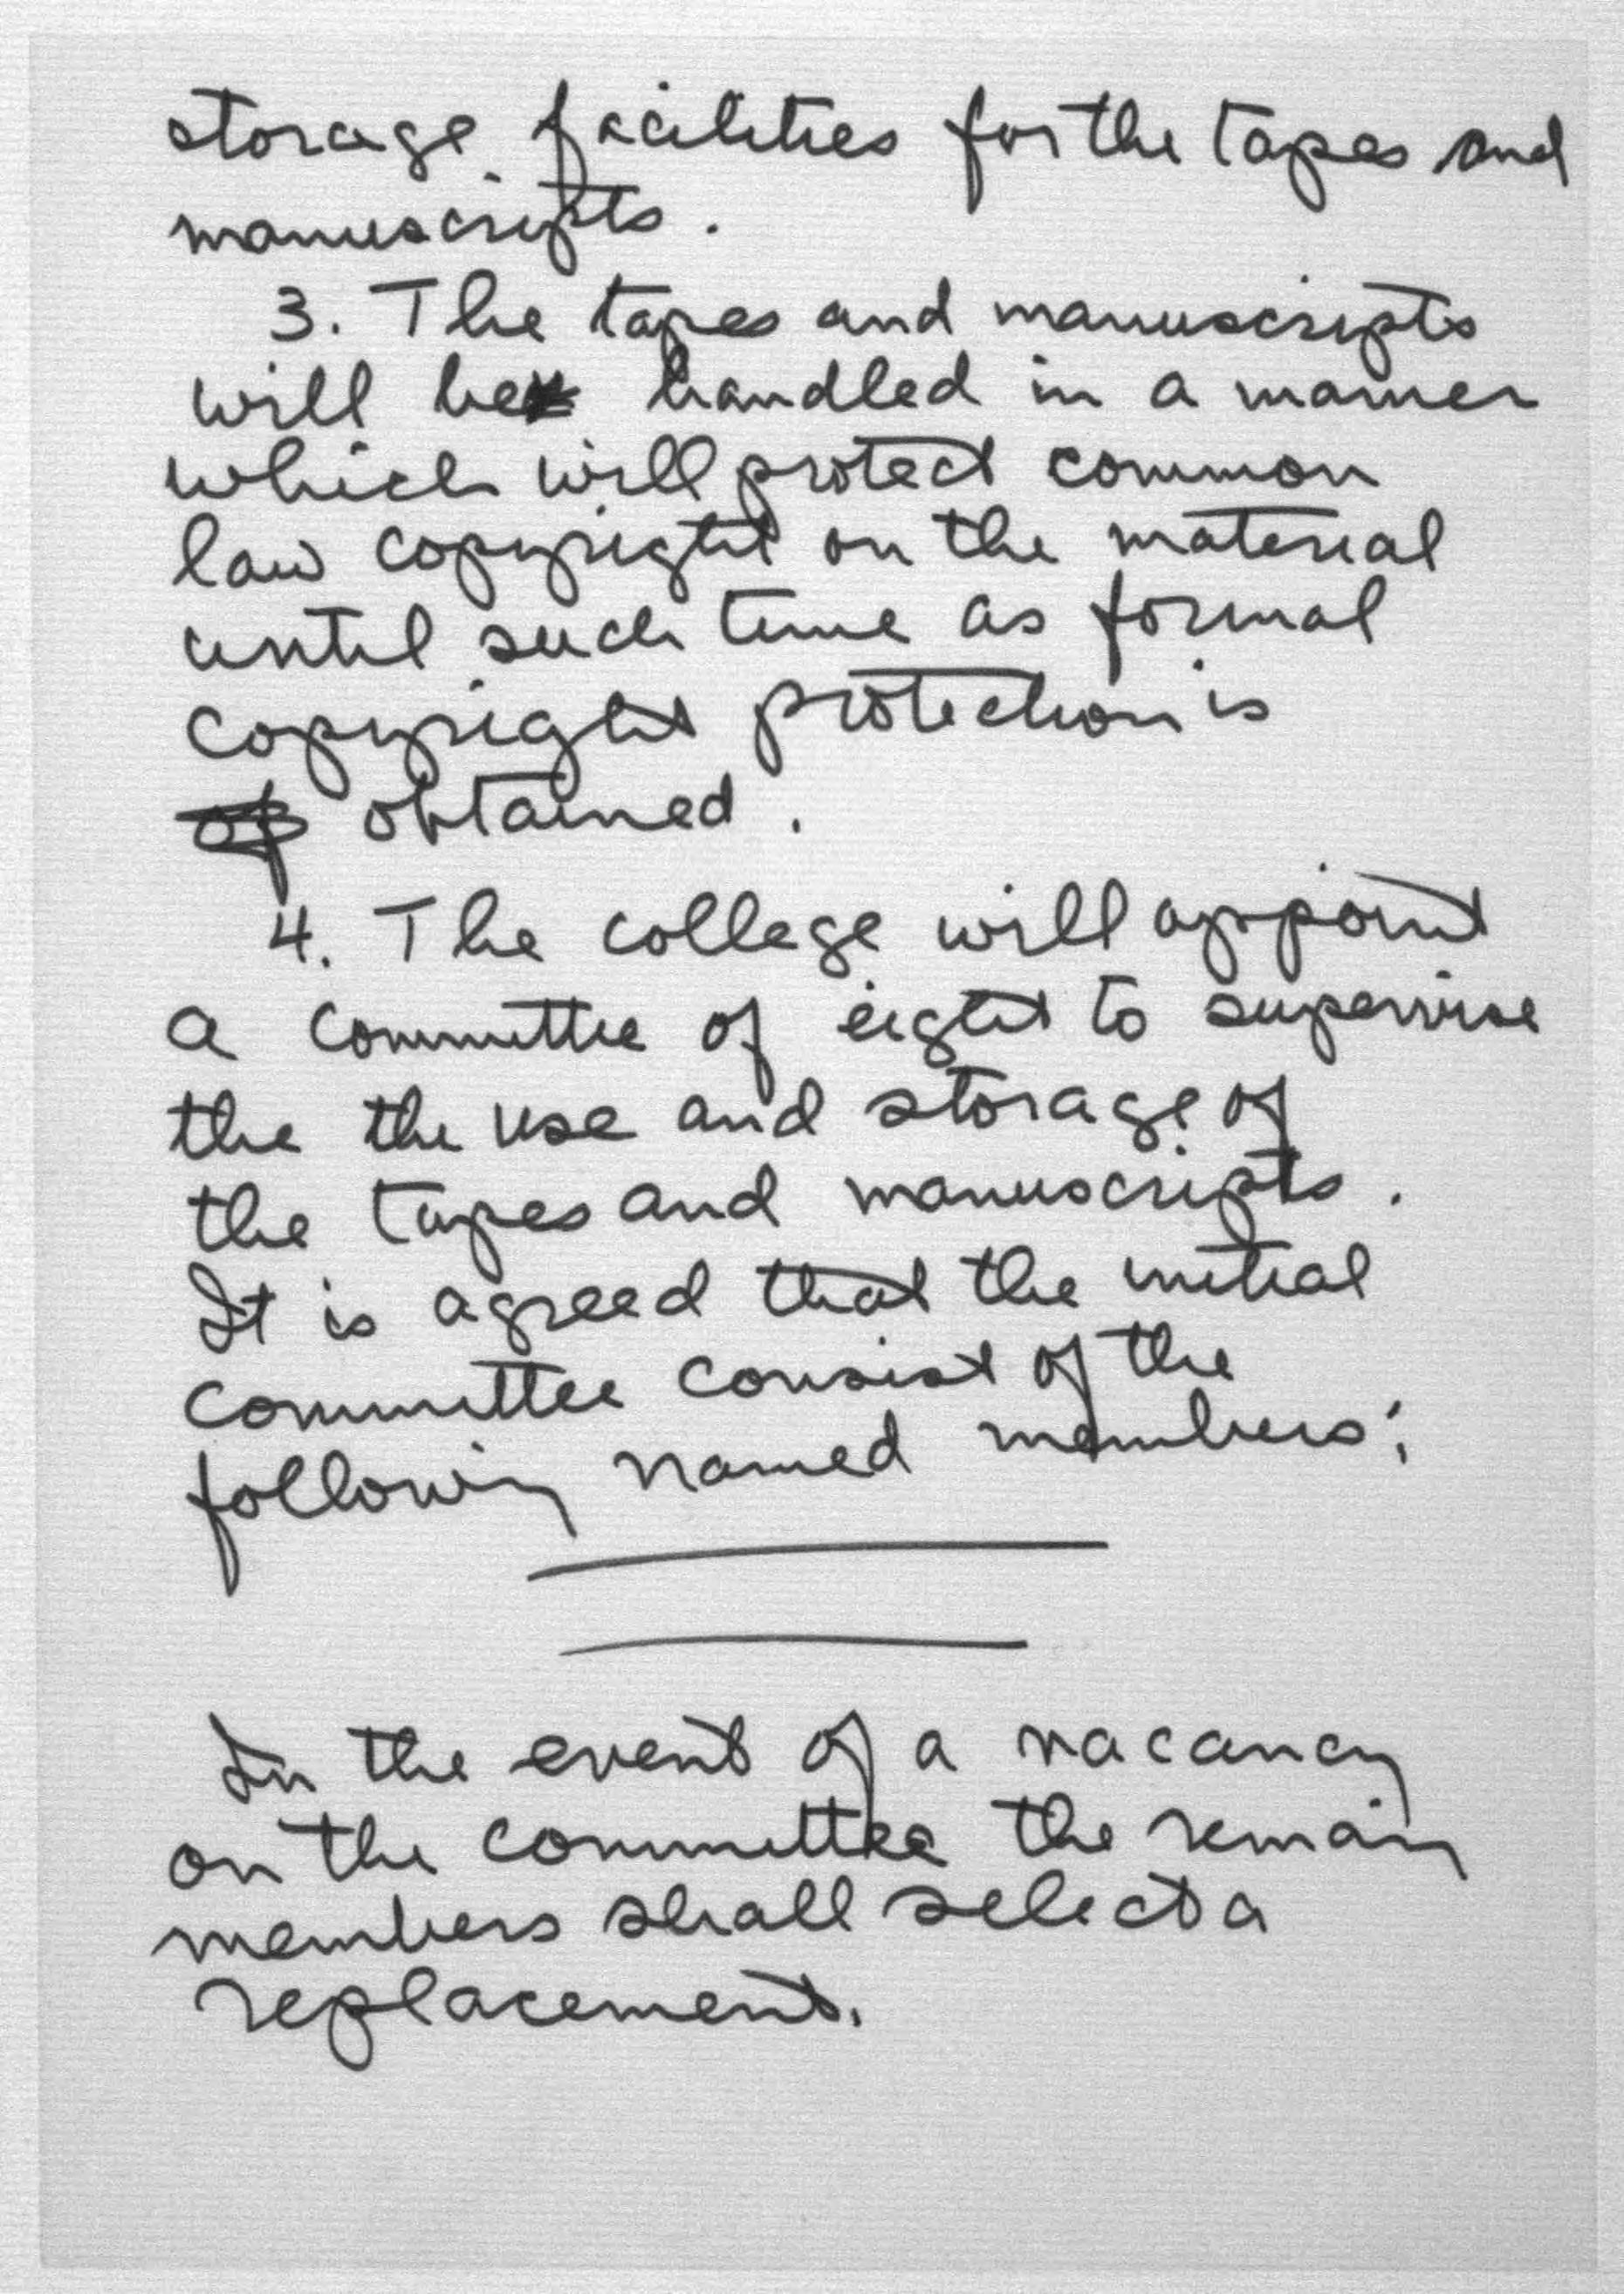 storage facilities for the tapes and
manuscripts.
3. The tapes and manuscripts
will be handled in a manner
which will protect common
law copyright on the material
until such time as formal
copyright protection is
of obtained.
4. The college will appoint
a committee of eight to supervise
the the use and storage of
the tapes and manuscripts.
It is agreed that the initial
committee consist of the
following named members:
In the event of a vacancy
on the committee the remain
members shall select a
replacement.